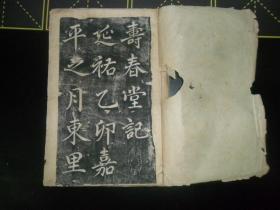 壽春堂記
延祐乙卯嘉
平之月東里